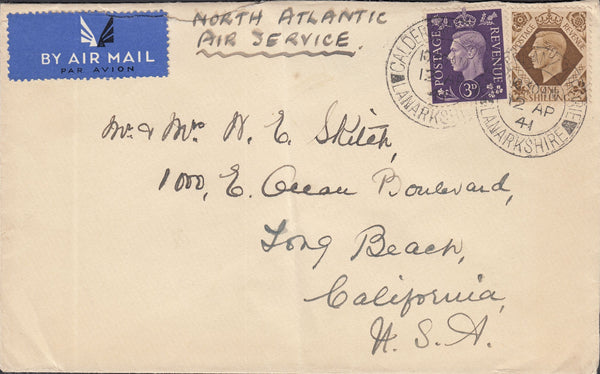 NORTH ATLANTIC
AIR SERVICE.
BY AIR MAIL
PAR AVION
POSTAGE REVENUE
3D
POSTAGE REVENUE
SHILLING
CALDER
LANARKSHIRE
12 AP
41
LANARKSHIRE
Mr. & Mrs N. E. Skitch,
1000, E. Ocean Boulevard,
Long Beach,
California,
U. S. A.